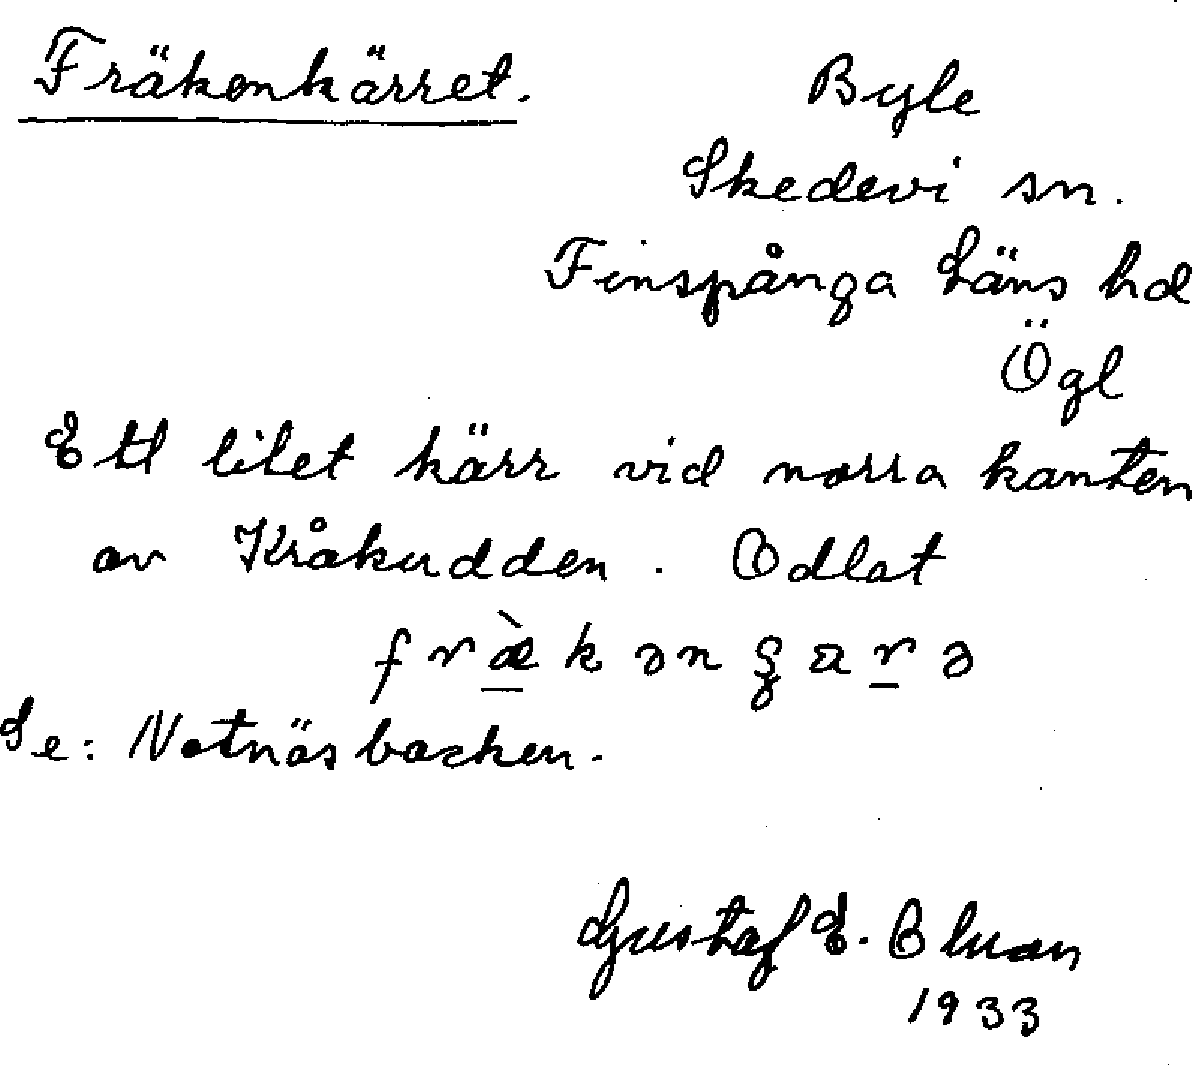 Fräkenkärret.
Byle
Skedevi sn.
Finspånga Läns hd
Ögl
Ett litet kärr vid norra kanten
av Kråkudden. Odlat
fræ̀kənʂærə
Se: Notnäsbacken.
Gustaf E.
1933